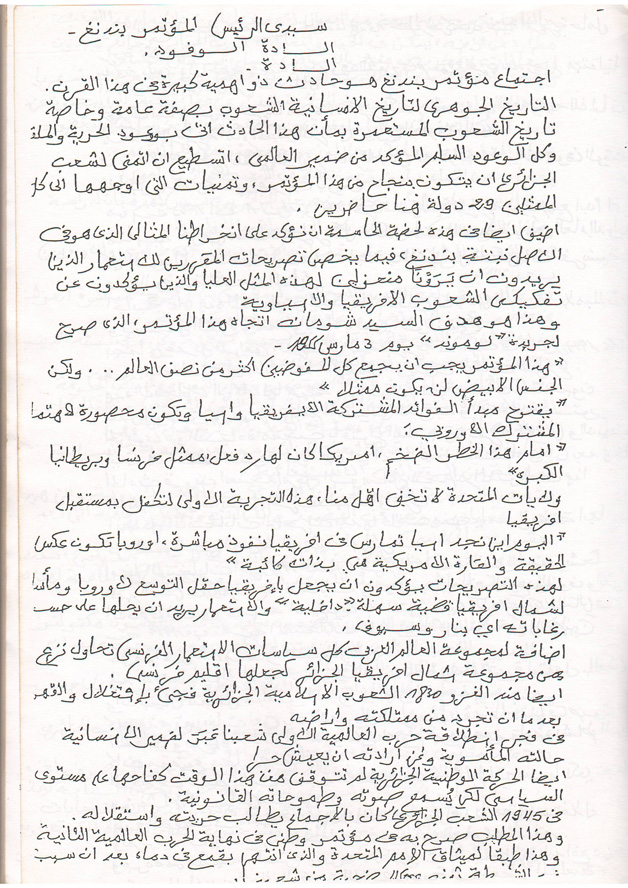 سيدي الرئيس لمؤتمر بندنغ -
السادة الوفود.
السادة -
اجتماع مؤتمر بندنغ هو حادث ذو اهمية كبيرة في هذا القرن.
التاريخ الجوهري لتاريخ الانسانية الشعوب بصفة عامة وخاصة
تاريخ الشعوب المستعمرة بمأن هذا الحادث اتى بوعود الحرية والعدالة
وكل الوعود السلم المؤكد من ضمير العالمي، استطيع ان اتمنى لشعب
الجزائري ان يتكون بنجاح من هذا المؤتمر، وتمنيات التي اوجهها الى كل
الممثلين 29 دولة هنا حاضرين.
اضيف ايضا في هذه لحضة الحاسمة ان نؤكد على انخراطنا المثالي الذي هو في
الاصل نبتة بندنغ، فيما يخص تصريحات المقررين للاستعمار الذين
يريدون ان يَرَوْنَا منعزلين لهذه المثل العليا والذين يؤكدون عن
تفكيك الشعوب الافريقيا والاسياوية
وهذا هو هدف السيد شومان اتجاه هذا المؤتمر الذي صرح
لجريدة "لوموند" يوم 3 مارس 1955 -
"هذا المؤتمر يجب ان يجمع كل المفوضين اكثر من نصف العالم... ولكن
الجنس الابيض لن يكون ممثلا"
"يقترح مبدأ الفوائد المشتركة الافريقيا واسيا وتكون محصورة لاهتما
المشترك الاوروبي.
"امام هذا الخطر الضخم، امريكا كان لها رد فعل، ممثل فرنسا وبريطانيا
الكبرى"
ولايات المتحدة لا تخفى اهل منا، هذه التجربة الاولى لتكفل بمستقبل
افريقيا
"اليوم اين نجد اسيا تمارس في افريقيا نفوذ مباشرة، اوروبا تكون عكس
الحقيقة والقارة الامريكية هي بذات كافية"
لهذه التصريحات يؤكدون ان يجعل بإفريقيا حقل التوسع لاوروبا ومأساة
لشمال افريقيا قضية سهلة "داخلية" والاستعمار يريد ان يحلها على حسب
رغباته اي بنار وسيوف.
اضافة لمجموعة العالم العربي كل سياسات الاستعمار الفرنسي تحاول نزع
من مجموعة شمال افريقيا الجزائر لجعلها اقليم فرنسي.
ايضا منذ الغزو 1830 الشعوب الاسلامية الجزائرية فجئ بإستقلال والقهر
بعدما ان تجرد من ممتلكته واراضيه
في فجر انطلاقة حرب العالمية الاولى شعبنا عبّر لضمير الانسانية
حالته المأسوية وعن ارادته ان يعيش حرا.
ايضا الحركة الوطنية الجزائرية لم تتوقف من هذا الوقت كفاحها على مستوى
السياسي لكي يُسمع صوته وطموحاته القانونية.
في 1945 الشعب الجزائري كان بالاجماع يطالب حريته واستقلاله.
وهذا المطلب صرح به في مؤتمر وطني في نهاية الحرب العالمية الثانية
وهذا طبقا لميثاق الامم المتحدة والذي انتهى بقمع في دماء بعد ان سبب